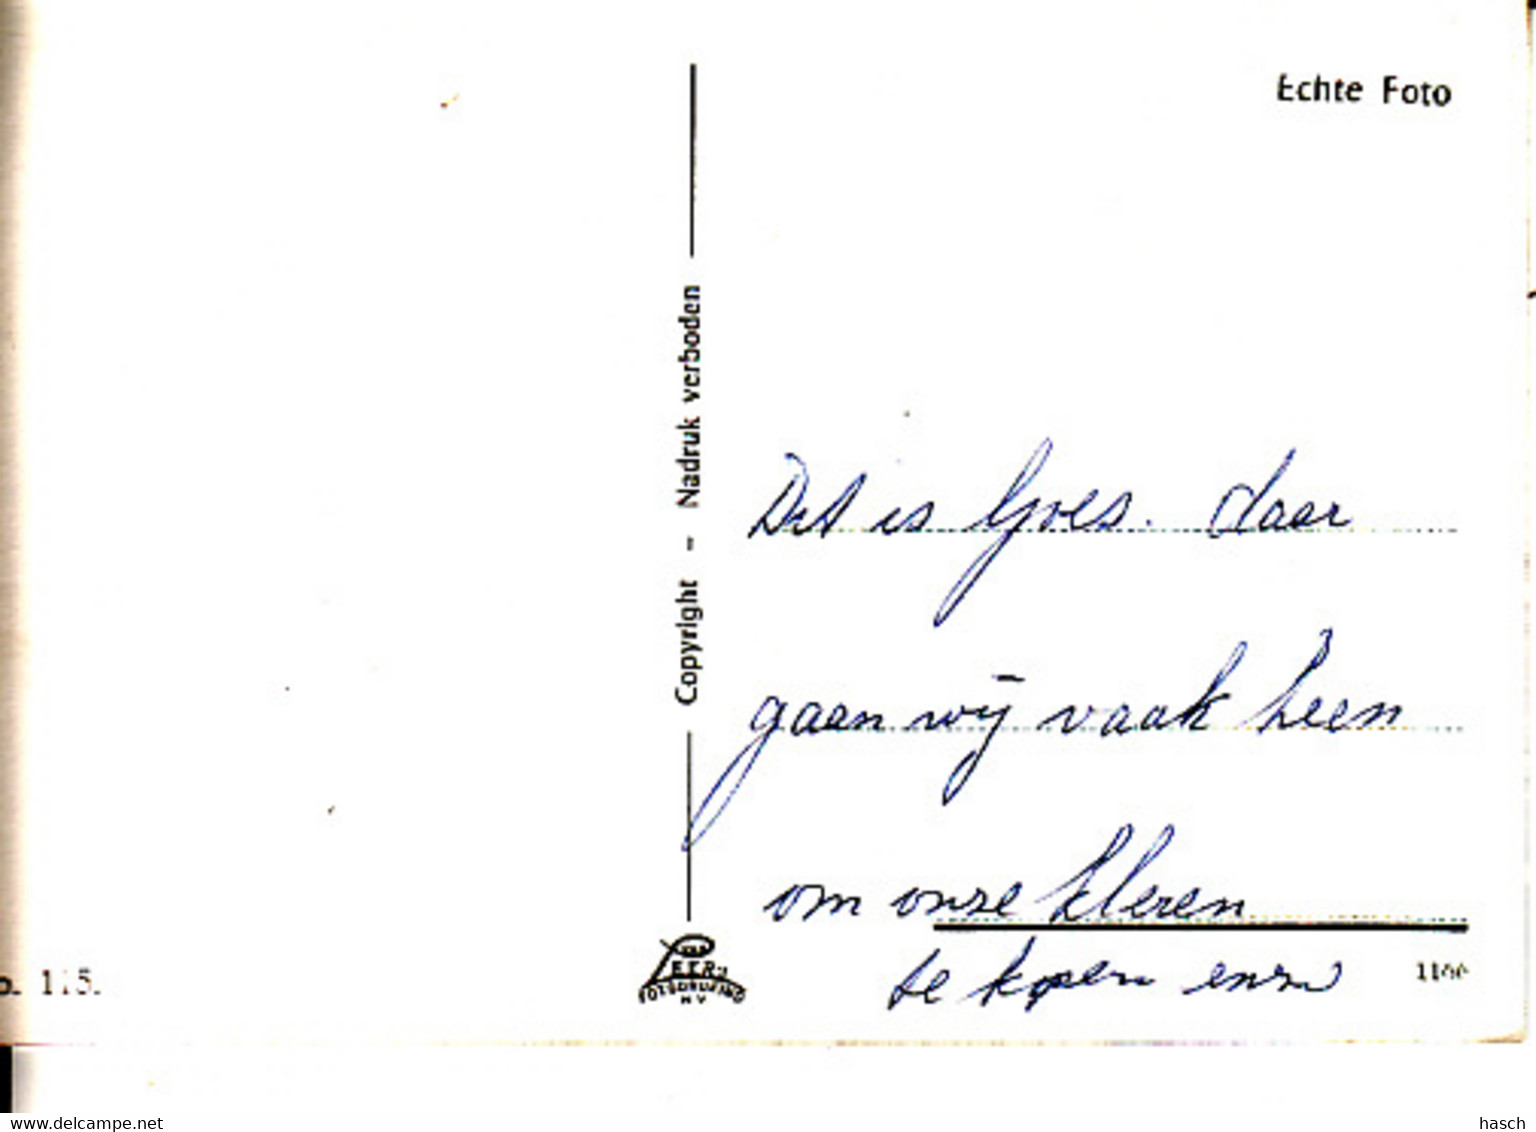 Echte Foto
Copyright - Nadruk verboden
Dit is Goes. daar
gaan wij vaak heen
om onze kleren
te kopen enzv
115.
FOTODRUK
N V
www.delcampe.net
hasch